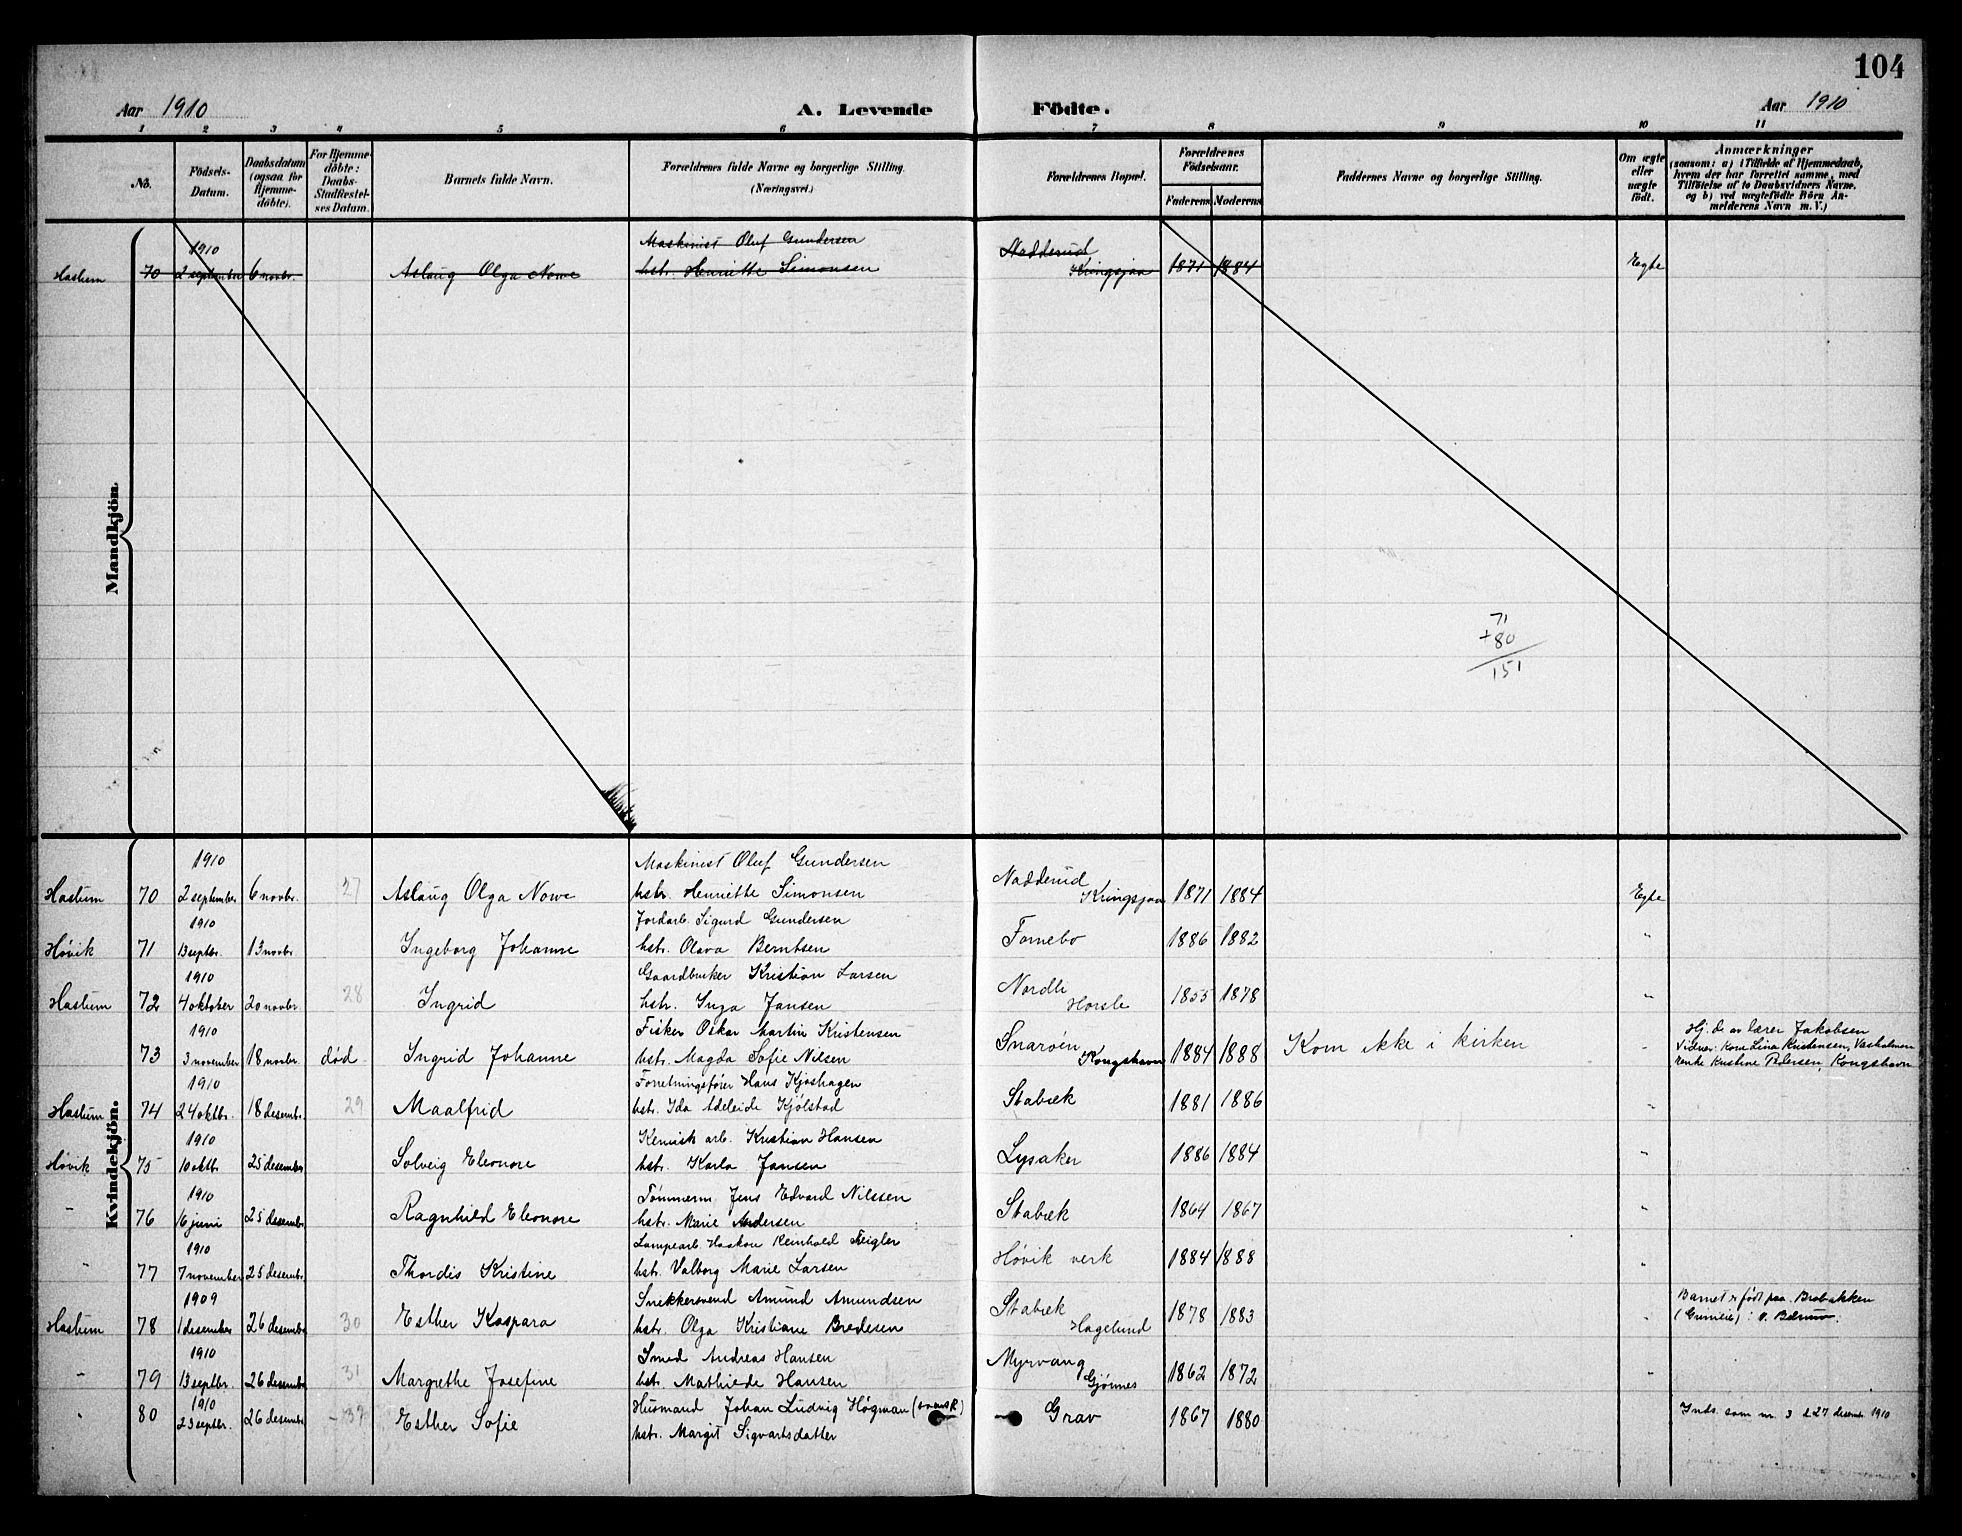 104
Aar 1910 A. Levende Födte. Aar 1910
1 2 3 4 5 6 7 8 9 10 11
No. Födsels-Datum. Daabsdatum (ogsaa for Hjemme-döbte). For Hjemme-döbte: Daabs-Stadfæstel-ses Datum. Barnets fulde Navn. Forældrenes fulde Navne og borgerlige Stilling. (Næringsvei.) Forældrenes Bopæl. Forældrenes Födselsaar. Faderens Moderens Faddernes Navne og borgerlige Stilling. Om ægte eller uægte födt. Anmærkninger (saasom: a) i Tilfælde af Hjemmedaab, hvem der har forrettet samme, med Tilföielse af to Daabsvidners Navne, og b) ved uægtefödte Börn An-melderens Navn m. V.)
Mandkjön
1910 Maskinist Oluf Gundersen Nadderud
Haslum 70 2 september 6 novbr. Aslaug Olga Nowe hstr. Henriette Simonsen Kringsjaa 1871 1884 Egte
71
+80
151
Kvindekjön.
1910 Maskinist Oluf Gundersen Nadderud
Haslum 70 2 september 6 novbr. 27 Aslaug Olga Nowe hstr. Henriette Simonsen Kringsjaa 1871 1884 Egte
1910 Jordarb. Sigurd Gundersen
Høvik 71 13 septbr. 13 novbr Ingeborg Johanne hstr. Olava Berntsen Fornebo 1886 1882 "
1910 Gaardbruker Kristian Larsen Nordli
Haslum 72 4 oktober 20 novbr. 28 Ingrid hstr. Inga Jansen Horsle 1855 1878 "
1910 Fisker Oskar Martin Kristensen Snarøen Hj. d. av lærer Jakobsen
73 3 november 18 novbr. død Ingrid Johanne hstr. Magda Sofie Nilsen Kongshavn 1884 1888 Kom ikke i kirken " Vidner: Kone Lina Kristensen, Vasholmen
enke Kristine Pedersen, Kongshavn
1910 Forretningsfører Hans Kjoshagen
Haslum 74 24 oktbr. 18 desembr. 29 Maalfrid hstr. Ida Adeleide Kjølstad Stabæk 1881 1886 "
1910 Kemisk arb. Kristian Hansen
Høvik 75 10 oktbr. 25 desember Solveig Eleonore hstr. Karla Jansen Lysaker 1886 1884 "
1910 Tømmerm. Jens Edvard Nilssen
" 76 16 juni 25 desembr. Ragnhild Eleonore hstr. Marie Andersen Stabæk 1864 1867 "
1910 Lampearb. Haakon Reinhold Feigler
" 77 7 november 25 desembr. Thordis Kristine hstr. Valborg Marie Larsen Høvik verk 1884 1888 "
1909 Snekkersvend Amund Amundsen Stabæk Barnet er født paa Brobakken
Haslum 78 1 desember 26 desembr 30 Esther Kaspara hstr. Olga Kristiane Bredesen Hagelund 1878 1883 " (Grinilei) i Ø. Bærum.
1910 Smed Andreas Hansen Myrvang
" 79 13 septbr. 26 desembr 31 Margrethe Josefine hstr. Mathilde Hansen Gjønnes 1862 1872 "
1910 Husmand Johan Ludvig Høgman (svensk)
" 80 23 septbr. 26 desembr Esther Sofie hstr. Margit Sigvartsdatter Grav 1867 1880 Inds. som nr. 3 d 27 desembr 1910